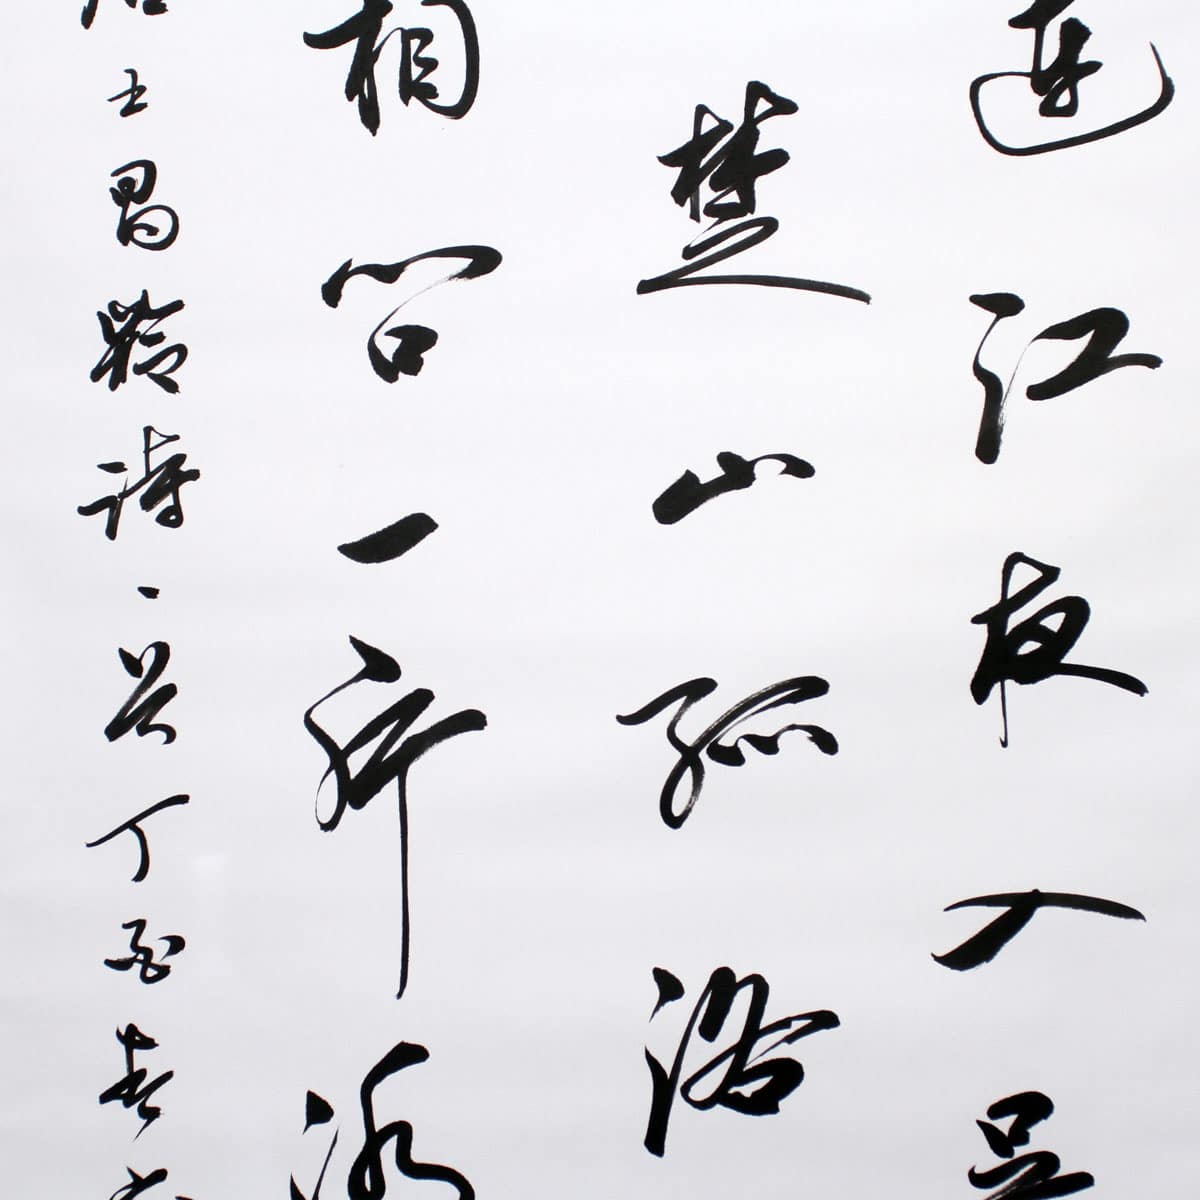 連江夜入吳
楚山孤洛
相問一片冰
王昌齡詩一首丁酉春